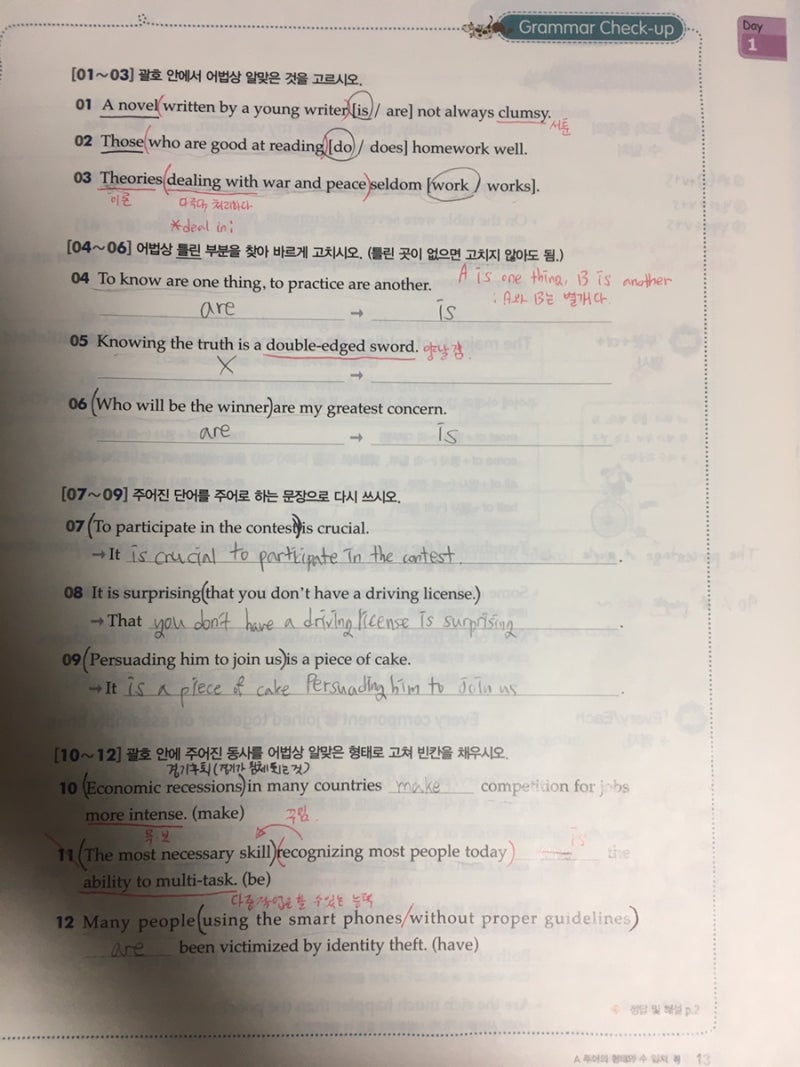 Grammar Check-up
Day
1
[01~03] 괄호 안에서 어법상 알맞은 것을 고르시오.
01 A novel written by a young writer [is / are] not always clumsy.
서툰
02 Those who are good at reading [do / does] homework well.
03 Theories dealing with war and peace seldom [work / works].
이론
다루다, 처리하다
*deal in;
[04~06] 어법상 틀린 부분을 찾아 바르게 고치시오. (틀린 곳이 없으면 고치지 않아도 됨.)
04 To know are one thing, to practice are another.
A is one thing, B is another
: A와 B는 별개다.
are → is
05 Knowing the truth is a double-edged sword. 양날검
X →
06 (Who will be the winner) are my greatest concern.
are → is
[07~09] 주어진 단어를 주어로 하는 문장으로 다시 쓰시오.
07 (To participate in the contest) is crucial.
→ It is crucial to participate in the contest.
08 It is surprising (that you don't have a driving license.)
→ That you don't have a driving license is surprising.
09 (Persuading him to join us) is a piece of cake.
→ It is a piece of cake Persuading him to join us.
[10~12] 괄호 안에 주어진 동사를 어법상 알맞은 형태로 고쳐 빈칸을 채우시오.
경기후퇴 (경기가 침체되는 것)
10 (Economic recessions) in many countries make competition for jobs
more intense. (make)
목·보
꾸밈.
11 (The most necessary skill) (recognizing most people today) is the
ability to multi-task. (be)
다중작업을 할 수 있는 능력
12 Many people (using the smart phones / without proper guidelines)
are been victimized by identity theft. (have)
정답 및 해설 p.2
A 주어의 형태와 수 일치 13